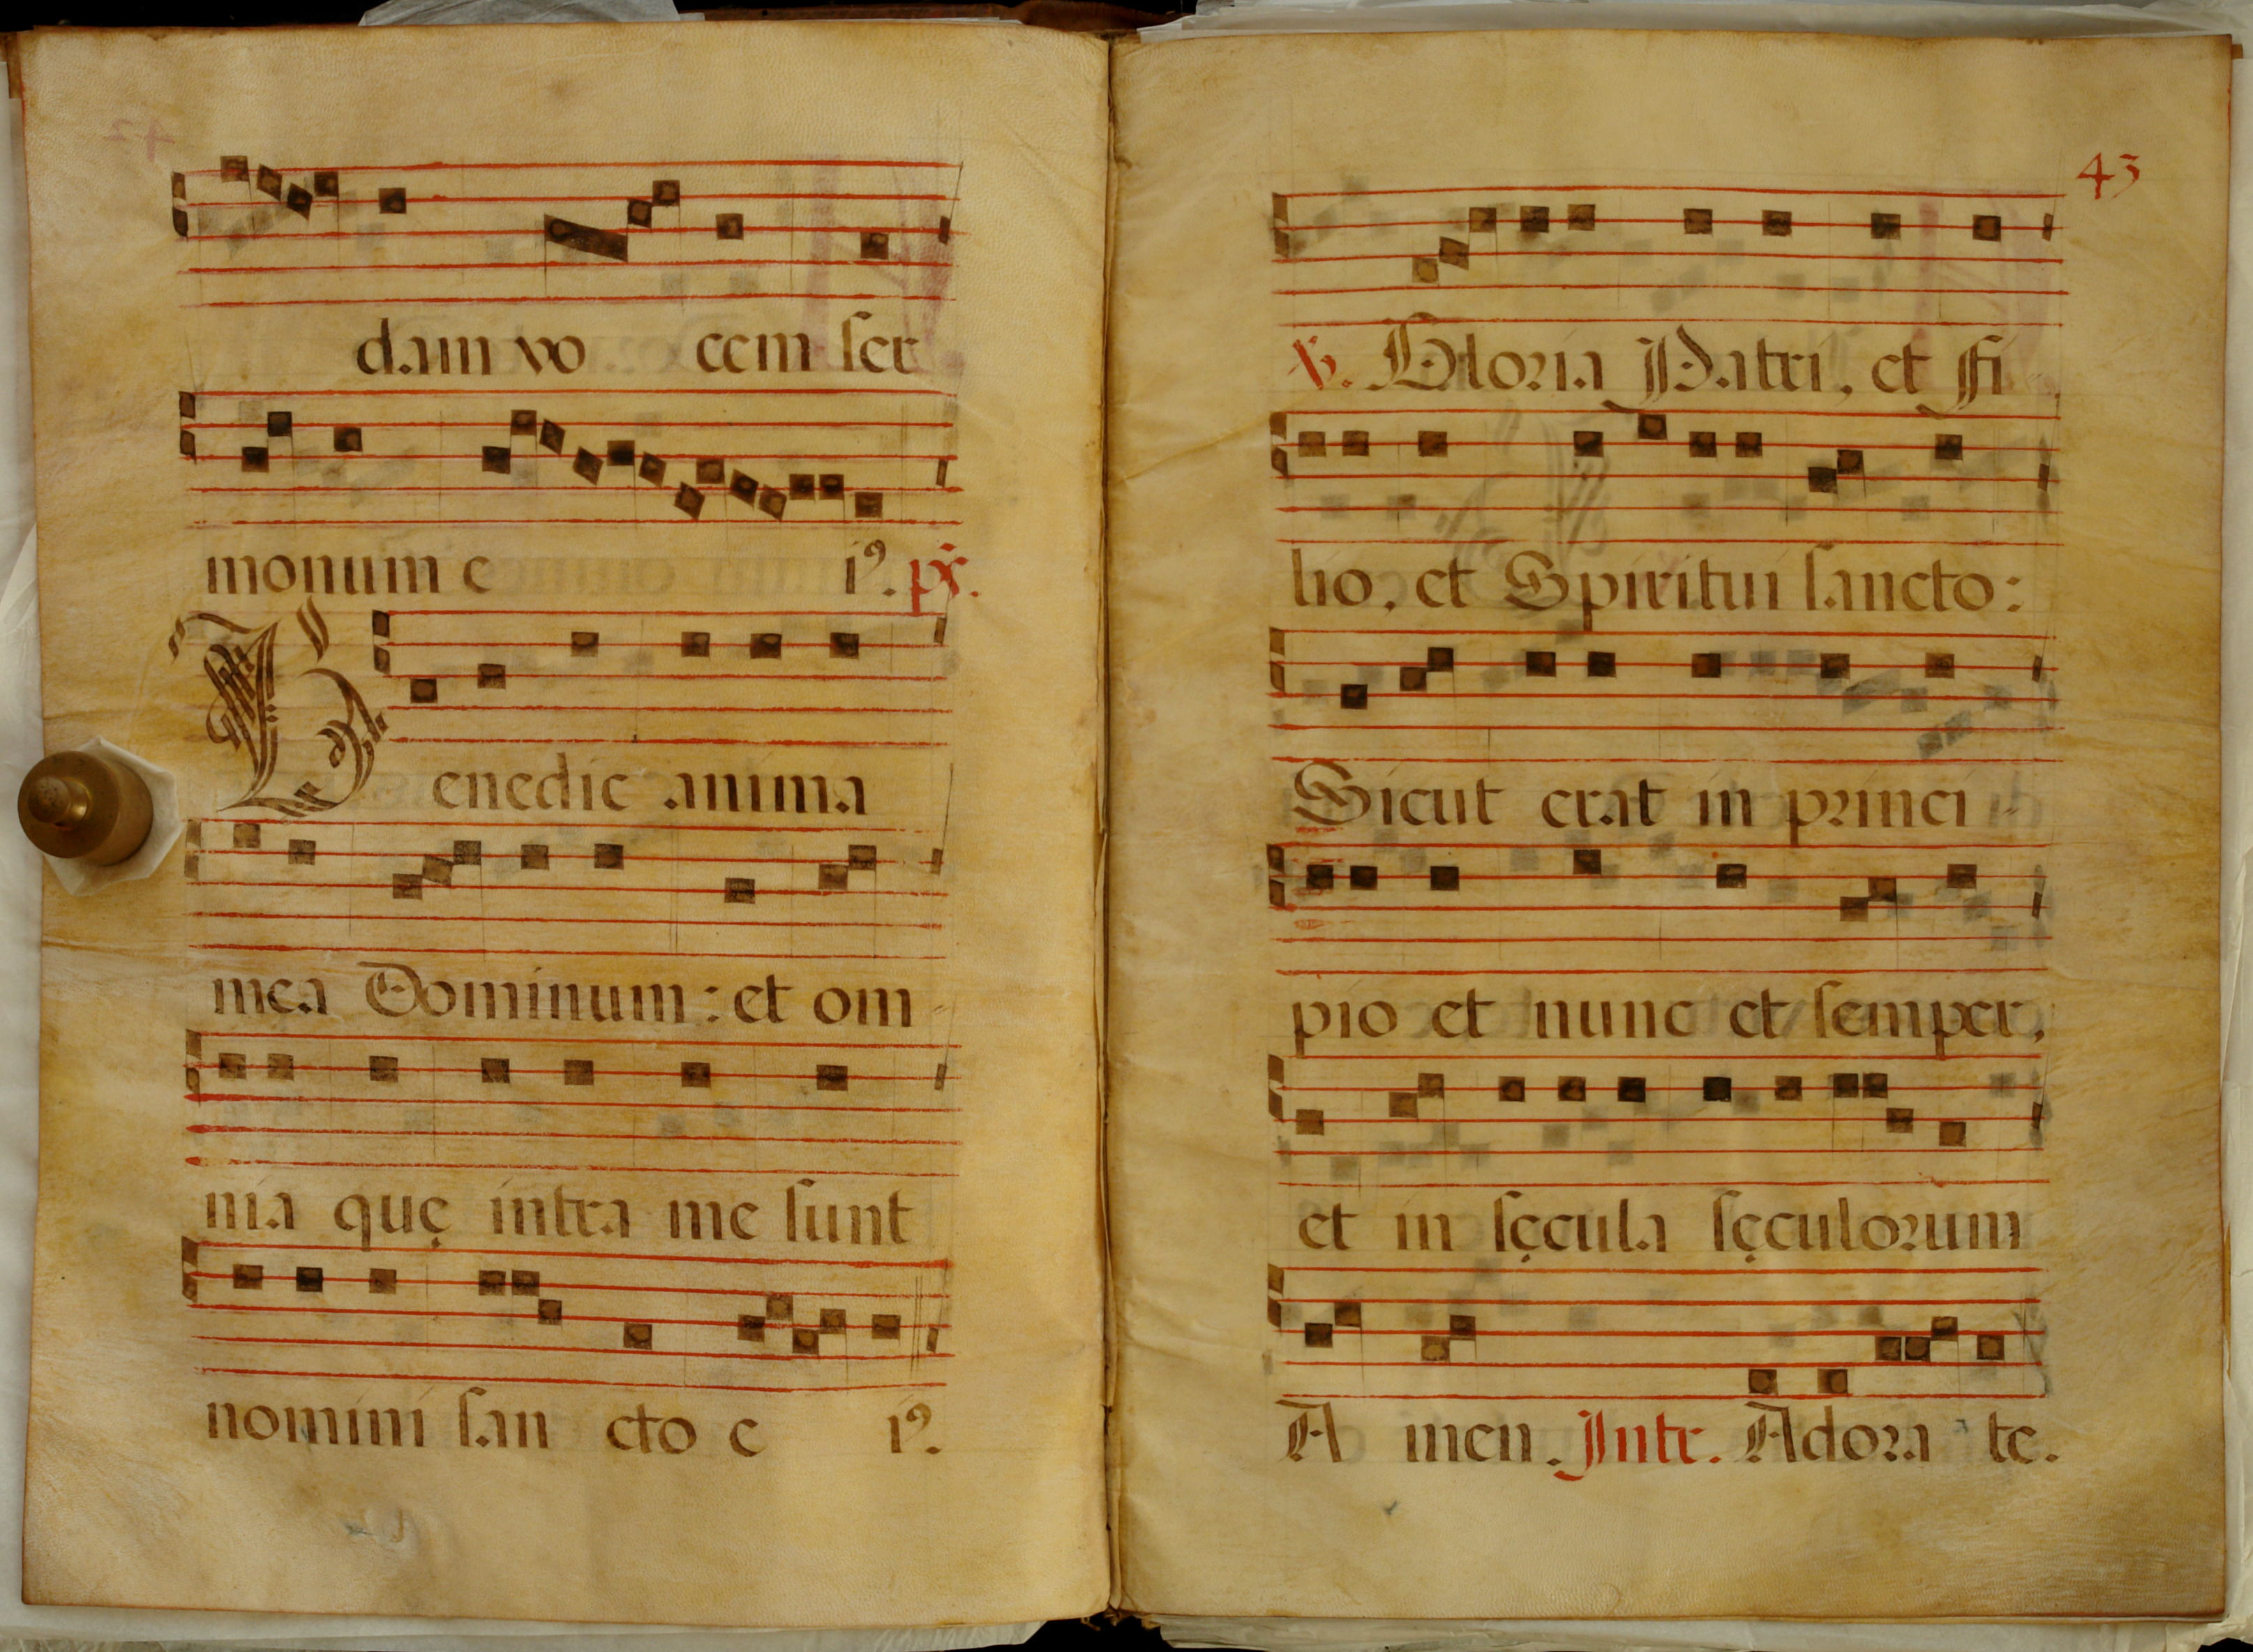 dam vo cem ser
monum e iꝰ. ps.
Benedic anima
mea Dominum : et om-
nia quę intra me sunt
nomini san cto e iꝰ.
43
℣. Gloria Patri, et Fi-
lio, et Spiritui sancto :
Sicut erat in princi-
pio et nunc et semper,
et in sęcula sęculorum
A men. Intr. Adora te.